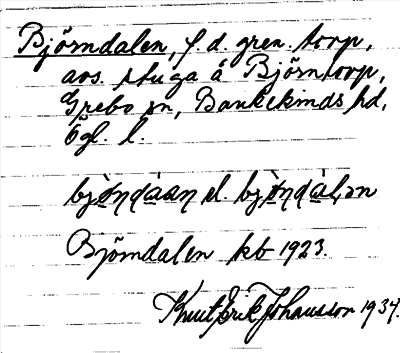 Björndalen, f. d. gren. torp,
avs. stuga å Björntorp,
Grebo sn, Bankekinds hd,
Ögl. l.
bjö̀ṇḍàan el. bjö̀ṇḍàlən
Björndalen kb 1923.
Knut Erik Johansson 1934.